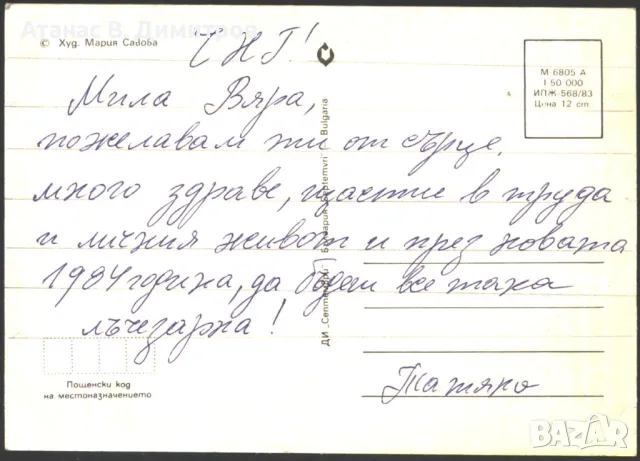 Атанас В. Димитров
© Худ. Мария Садова
ЧНГ!
М 6805 А
I 50 000
ИПЖ-568/83
Цена 12 ст.
Мила Вяра,
пожелавам ти от сърце,
много здраве, щастие в труда
и личния живот и през новата
1984 година, да бъдеш все така
лъчезарна!
ДИ „Септември“ България Septemvri Bulgaria
Пощенски код
на местоназначението
BAZAR